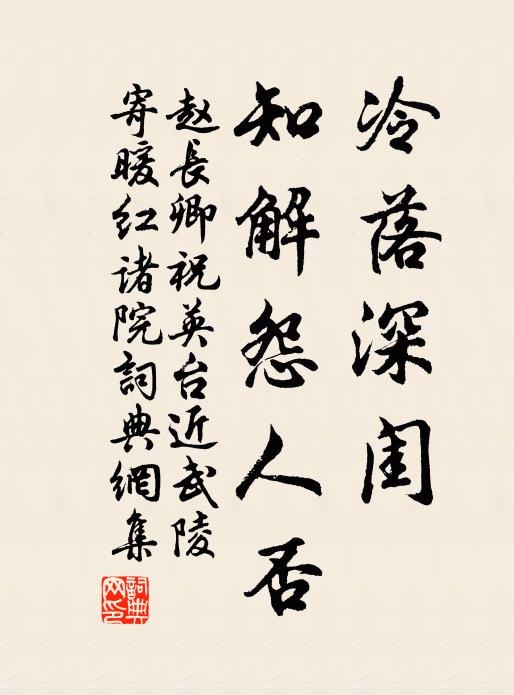 冷落深闺
知解怨人否
赵長卿祝英台近武陵
寄暖红诸院詞典網集
詞典
网印